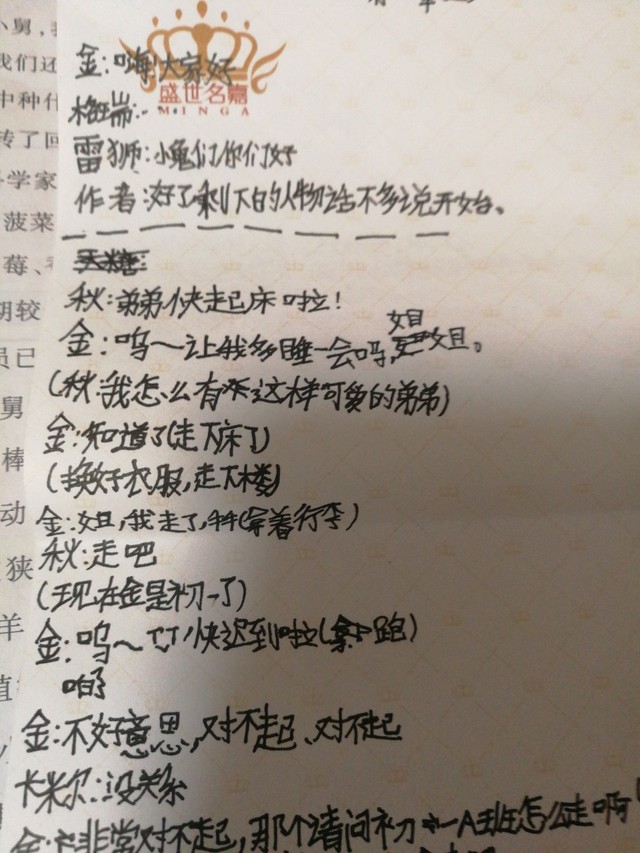 金:嗨大家好
盛世名嘉
MINGA
格瑞:..
雷狮:小鬼们你们好
作者:好了剩下的人物话不多说开始。
秋:弟弟快走起床啦!
金:呜~让我多睡一会吗,姐姐。
(秋:我怎么有这样可爹的弟弟)
金:知道了(走下床了)
(换好衣服,走下楼)
金:姐,我走了,(拿着行李)
秋:走吧
(现在金是初一了)
金:呜~快迟到啦(拿跑)
金:不好意思,对不起、对不起
卡米尔:没关系
金:非常对不起,那个请问初一A班怎么走啊
小舅,
我们还
中种什
转了回
学家
菠菜
莓、
期较
员已
舅
棒
动
狭
羊
值